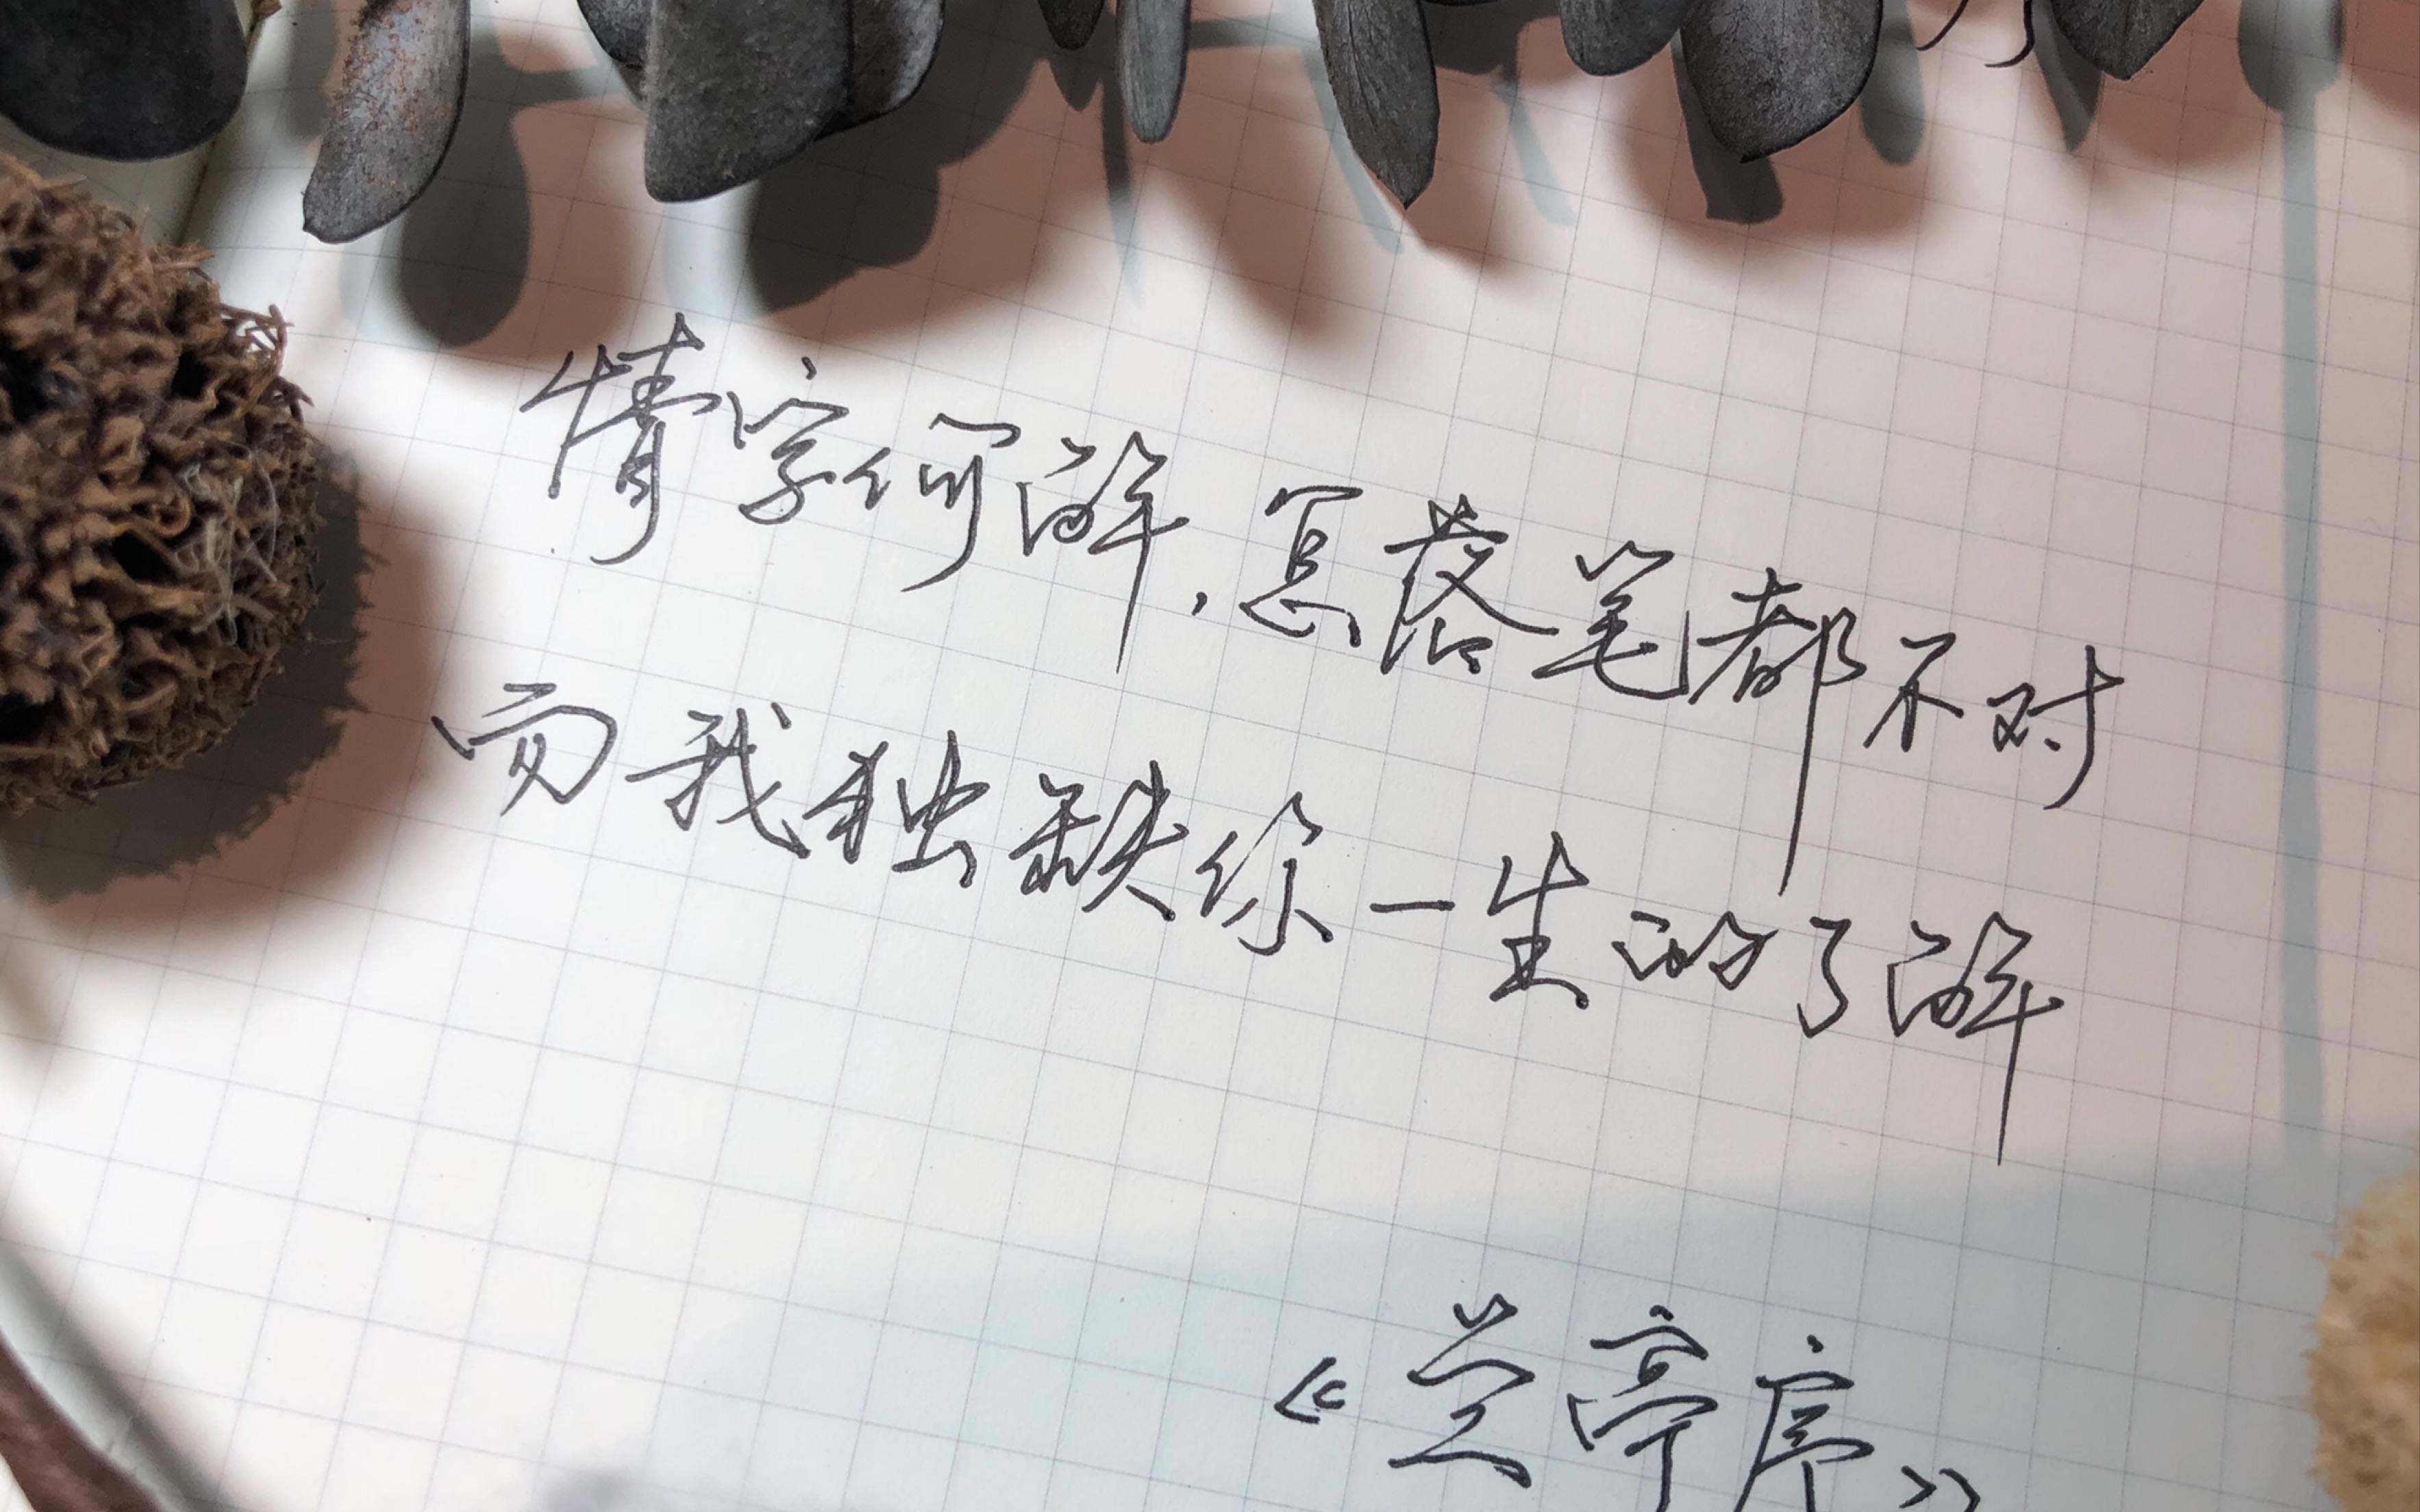 情字何解,怎落笔都不对
而我独缺你一生的了解
《兰亭序》